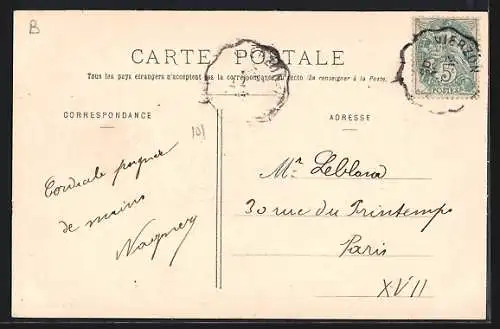 B
CARTE POSTALE
Tous les pays étrangers n'acceptent pas la correspondance au recto (Se renseigner à la Poste)
CORRESPONDANCE
ADRESSE
VIERZON
5
POSTES
101
Cordiale poignée
de mains
Mr. Leblond
30 rue du Printemps
Paris
XVII